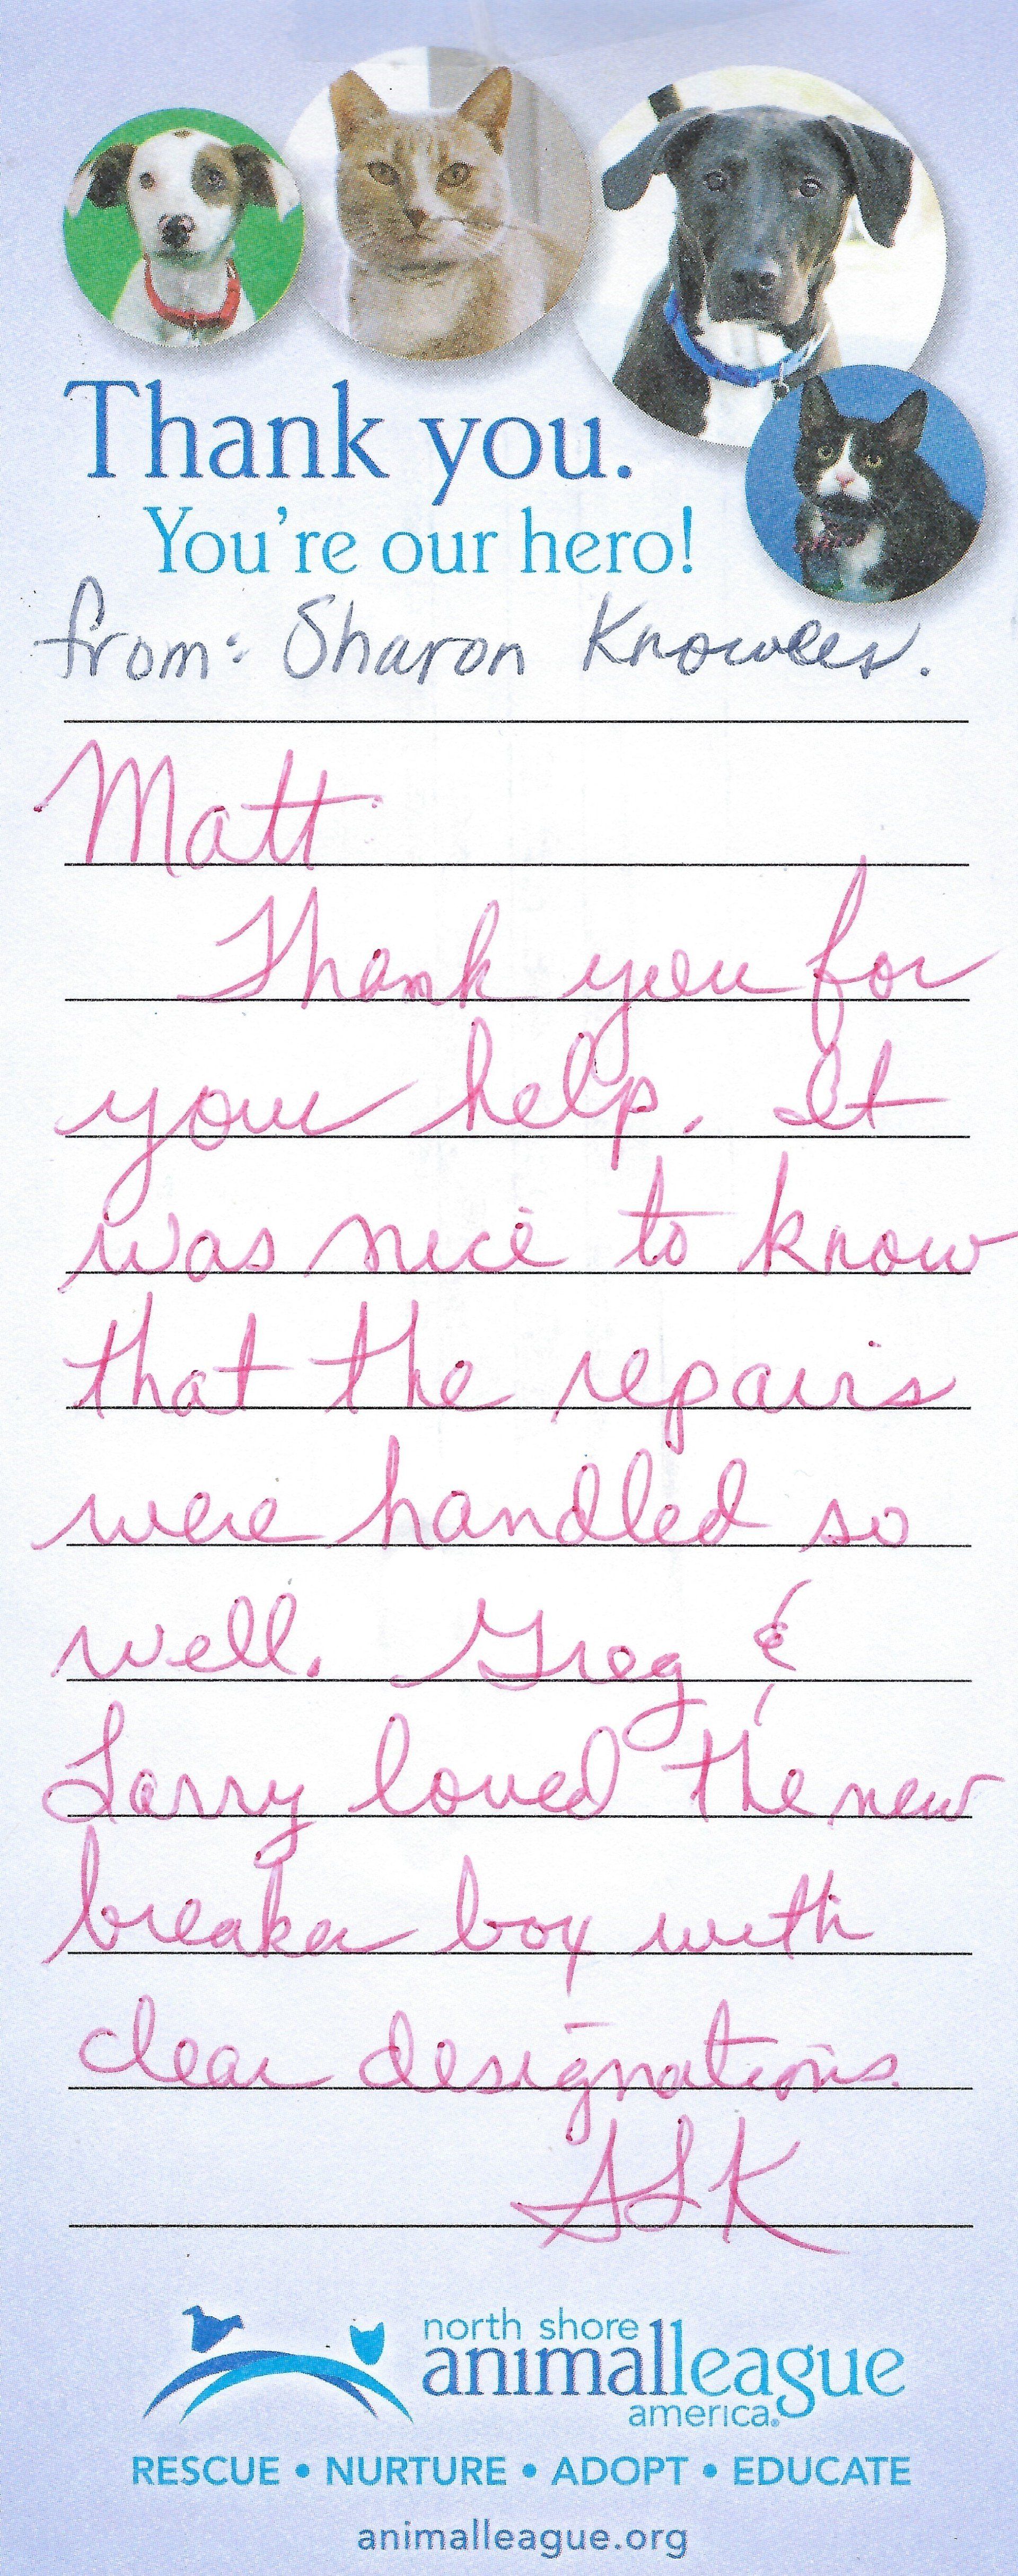 Thank you.
You're our hero!
from: Sharon Knowles.
Matt
Thank you for
your help. It
was nice to know
that the repairs
were handled so
well. Greg &
Larry loved the new
breaker box with
clear designations.
SLK
north shore
animalleague
america®
RESCUE • NURTURE • ADOPT • EDUCATE
animalleague.org